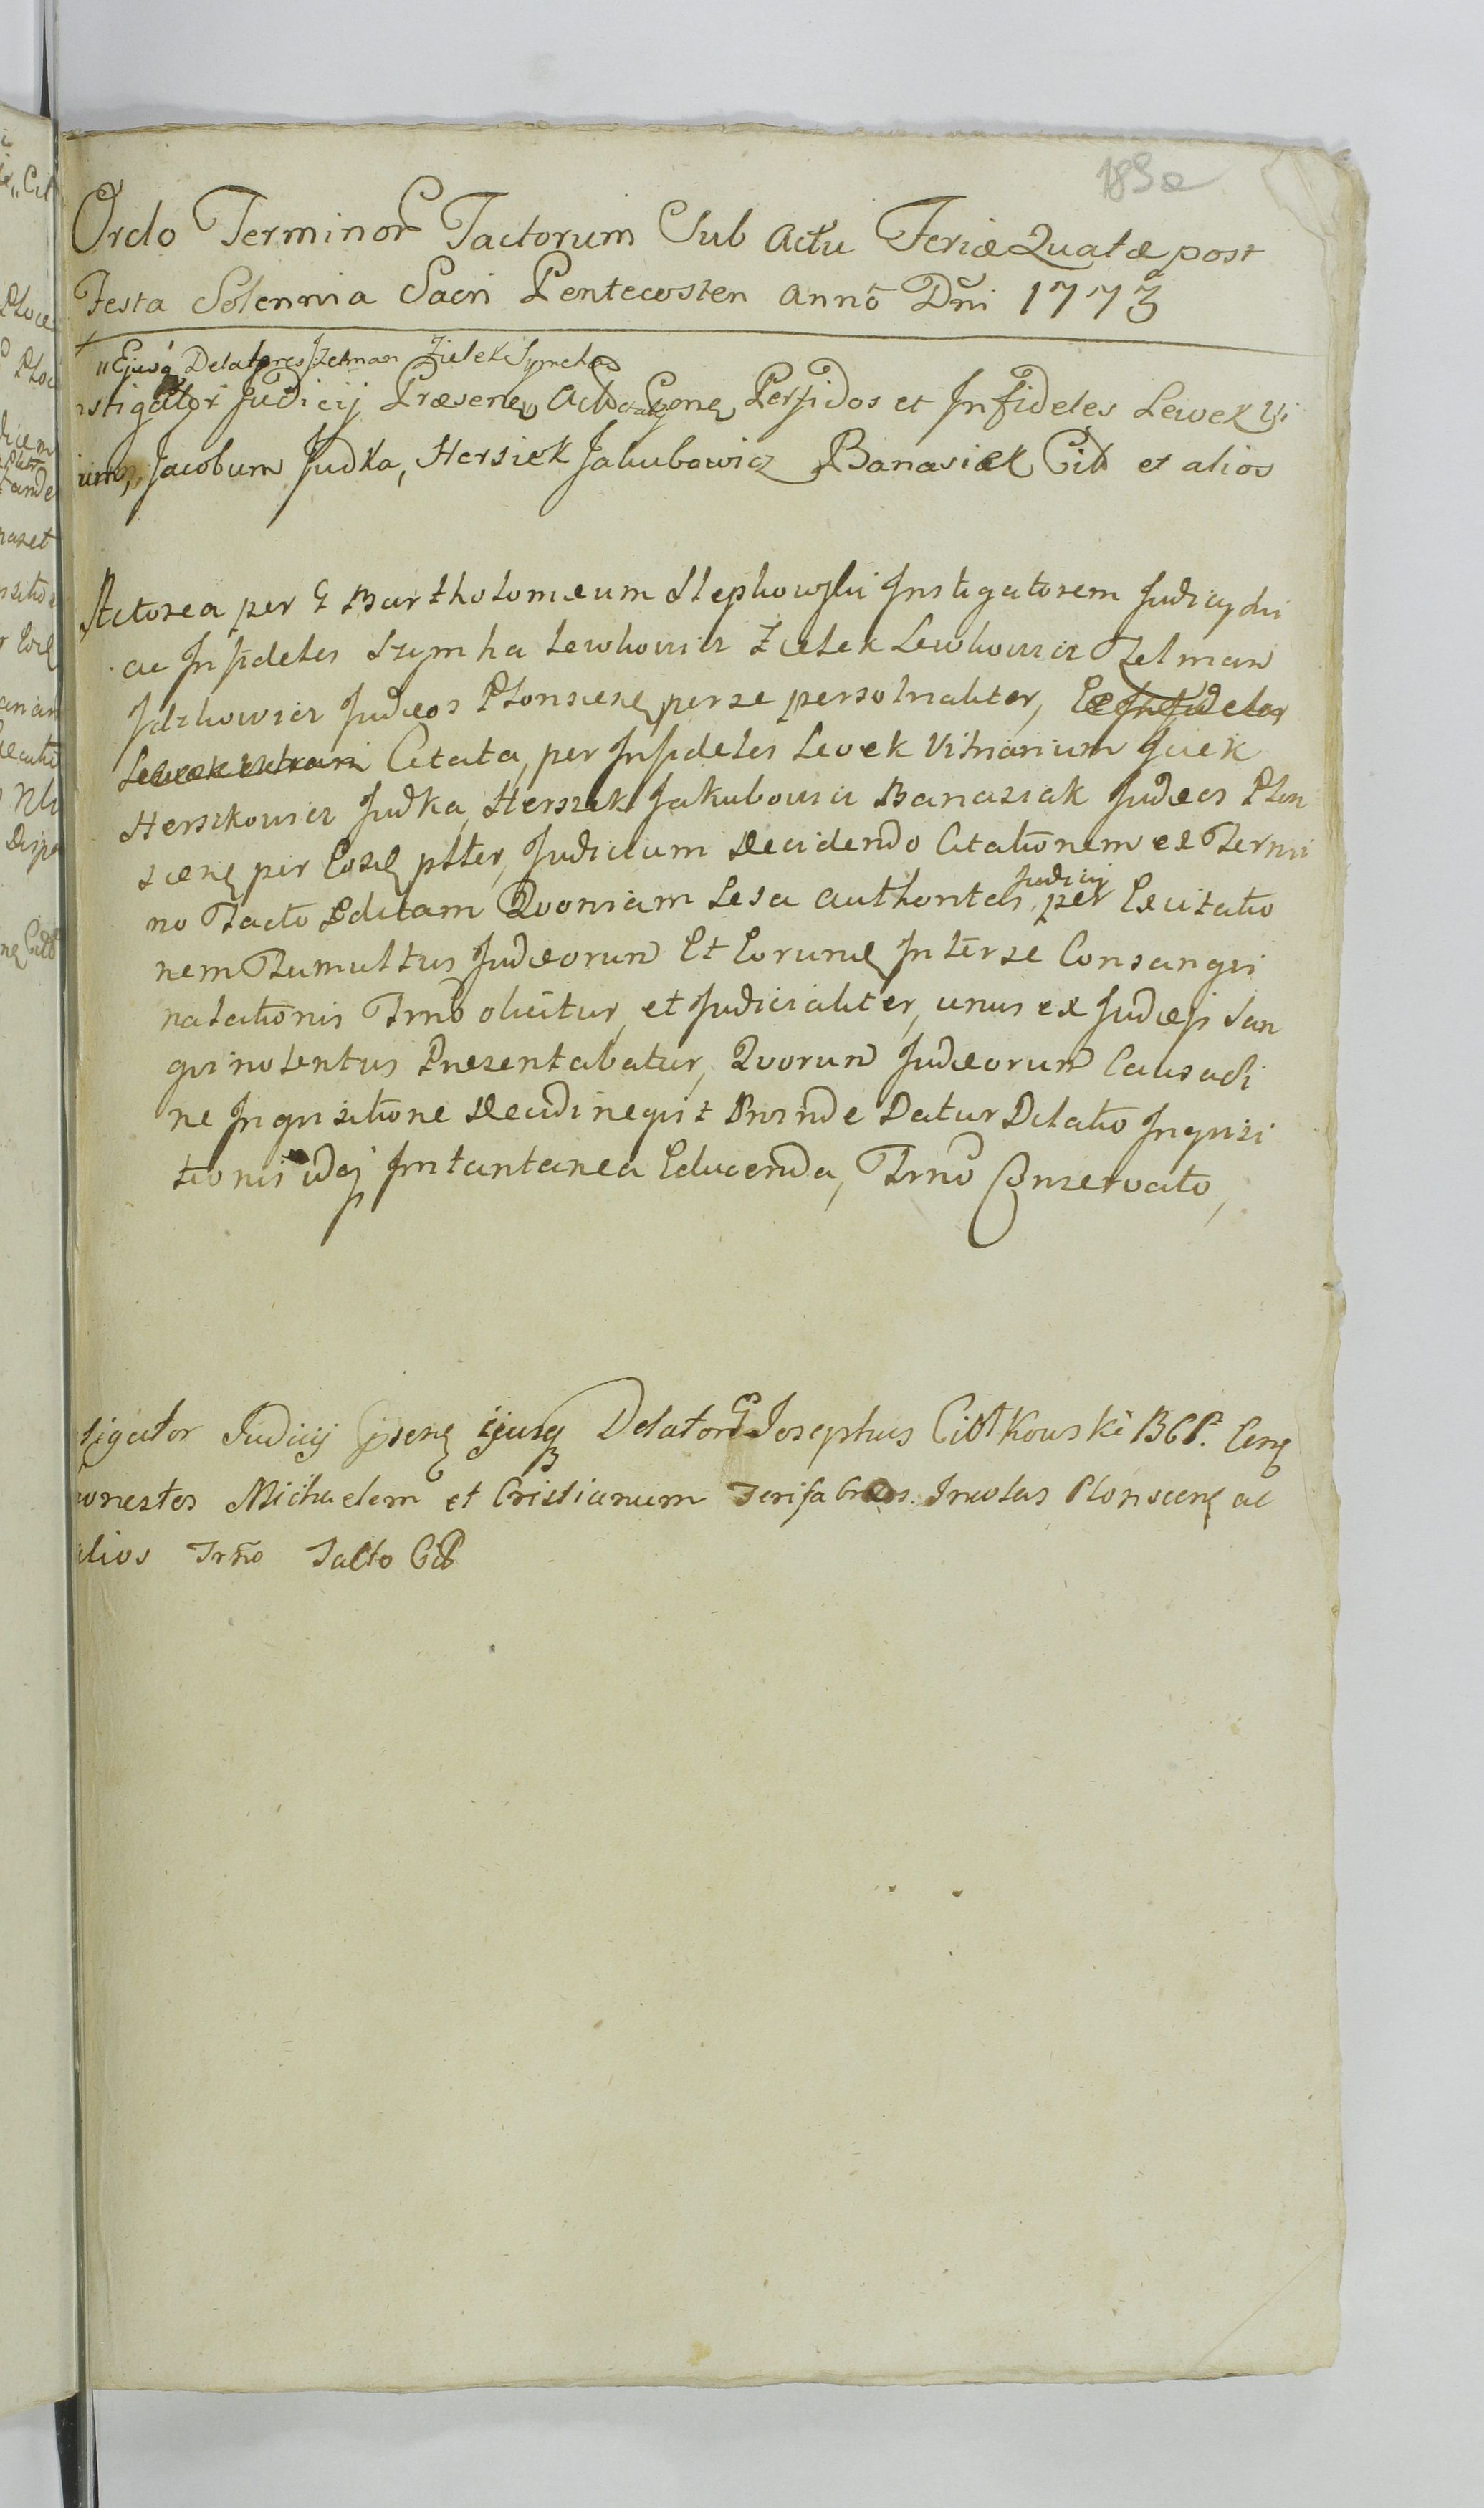 185a
Ordo Terminor Tactorum Sub Actu Feriæ Quatæ post
Festa Solennia Sacri Pentecosten Annō Dni 1773
"Ejusq Delatores Zelman Zielek Symcha
nstigator Judicij Præsene Act Cone Perfidos et Infideles Lewek Vi
Jacobum Judka, Hersiek Jakubowicz Banasiek Citt et alios
Actorea per G Bartholomæum Slepkowski Instigatorem Judicij
ac Infideles Szymha Lewkowicz Zielek Lewkowicz Zelman
Judæos Plonscense per se personaliter, Et Infideles
Lewek Citata, per Infideles Lewek Vitriarium Jcek
Herszkowicz Judka, Herszek Jakubowicz Banaziak Judæos Plon
scene per Eose pltter, Judicium Decidendo Citationem ex Termi
no Tacto Editam Quoniam Lesa Authoritas Judicij per Excitatio
nem Tumultus Judæorum Et Eorum Inter se Consangvi
nalationis Trno olicitur, et Judicialiter, unus ex Judæis San
gvinolentus Præsentabatur, Quorum Judæorum Causa Si
ne Inqvisitione Decidi neqvit Proinde Datur Dilatio Inqvisi
tionis Instantanea Educenda, Trno Conservato,
tigator Judicij psene Ejusq Delator G Josephus Ciótkowski BCP. Cone
onestos Michaelem et Cristianum Serifabros Incolas Plonscene ac
alios Trno Tacto Citt